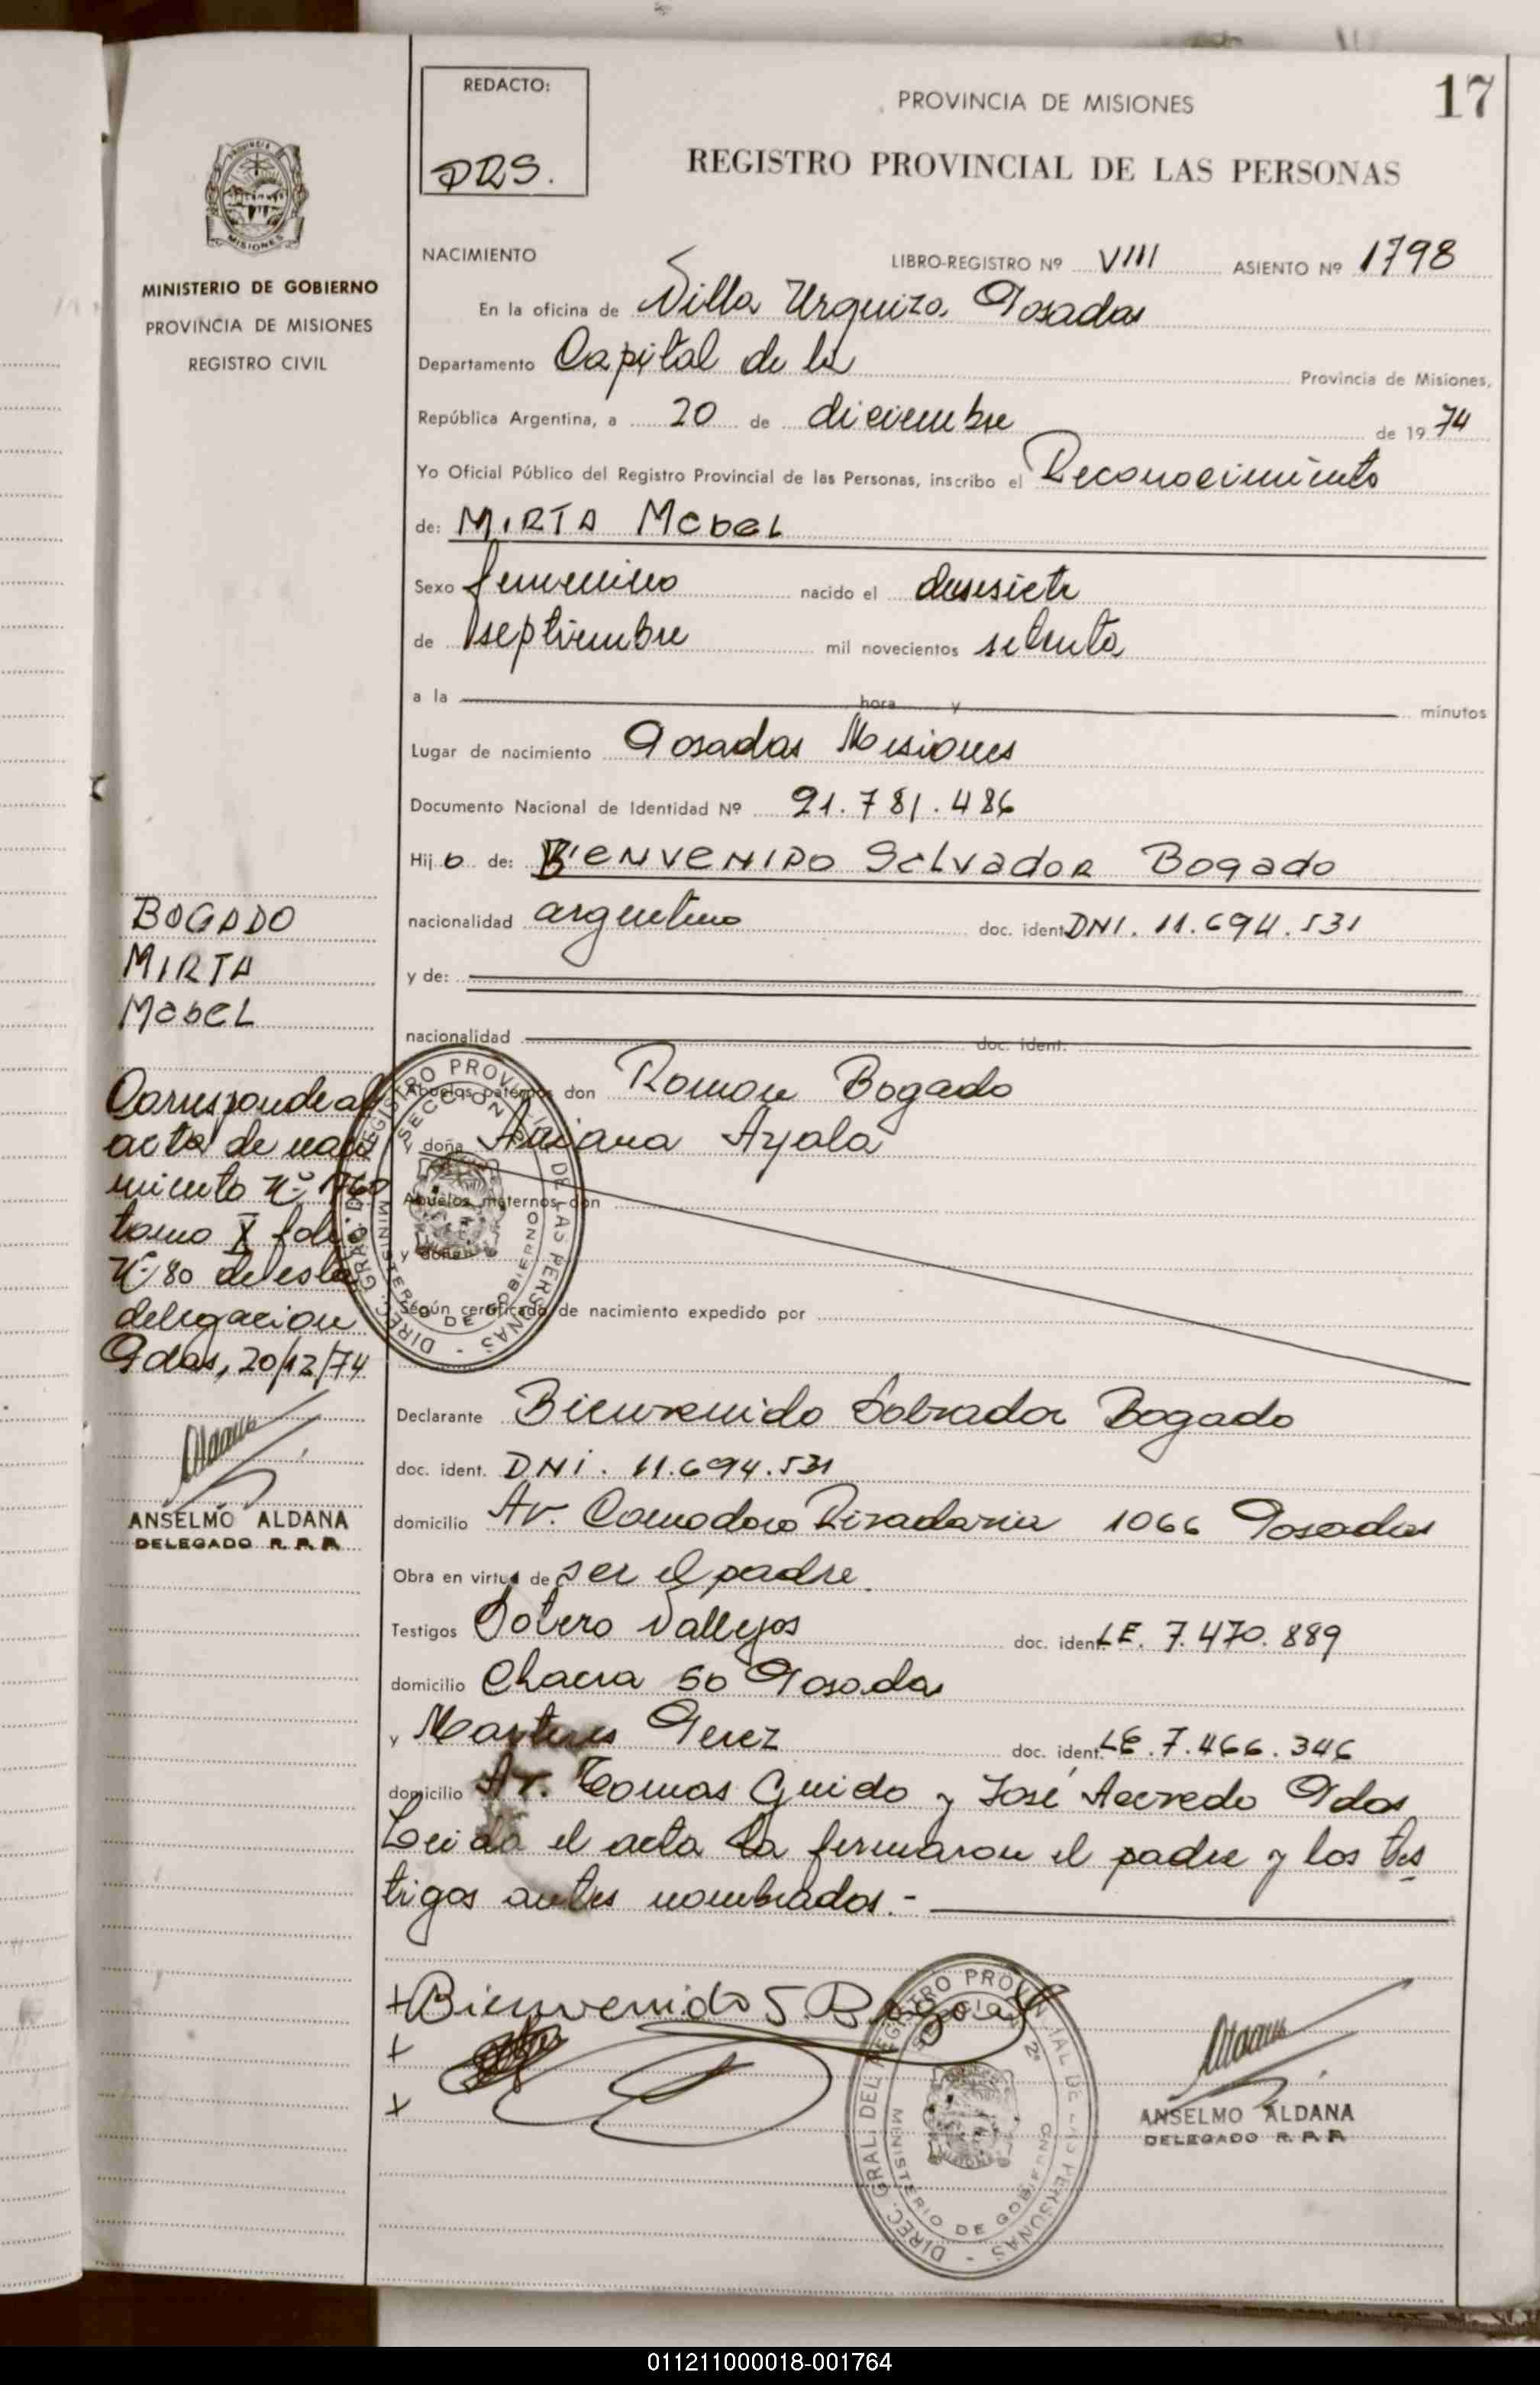 17
REDACTO:
DRS.
PROVINCIA DE MISIONES
REGISTRO PROVINCIAL DE LAS PERSONAS
PROVINCIA
MISIONES
MINISTERIO DE GOBIERNO
PROVINCIA DE MISIONES
REGISTRO CIVIL
NACIMIENTO LIBRO-REGISTRO Nº VIII ASIENTO Nº 1798
En la oficina de Villa Urquiza Posadas
Departamento Capital de la Provincia de Misiones,
República Argentina, a 20 de diciembre de 1974
Yo Oficial Público del Registro Provincial de las Personas, inscribo el Reconocimiento
de: MIRTA MabeL
Sexo femenino nacido el diesisiete
de septiembre mil novecientos setenta
a la hora y minutos
Lugar de nacimiento Posadas Misiones
Documento Nacional de Identidad Nº 21.781.486
Hij o de: BIENVENIDO SaLvadoR Bogado
nacionalidad argentino doc. ident. DNI. 11.694.531
y de:
nacionalidad doc. ident.
Abuelos paternos don Roman Bogado
y doña Ayala
Abuelos maternos don
y doña
Según certificado de nacimiento expedido por
BOGADO
MIRTA
MabeL
Corresponde al
acta de naci
miento Nº 1760
tomo X folio
Nº 80 de esta
delegacion
Pdas, 20/12/74
ANSELMO ALDANA
DELEGADO R. P. P.
Declarante Bienvenido Salvador Bogado
doc. ident. DNI. 11.694.531
domicilio Av. Comodoro Rivadavia 1066 Posadas
Obra en virtud de ser el padre.
Testigos Sotero Vallejos doc. ident. LE. 7.470.889
domicilio Chacra 50 Posadas
y Perez doc. ident. LE. 7.466.346
domicilio Av. Tomas Guido y José Acevedo Pdas
Leida el acta la firmaron el padre y los tes
tigos antes nombrados.-
+ Bienvenido S. Bogado
+
x
DIREC. GRAL. DEL REGISTRO PROVINCIAL DE LAS PERSONAS
MINISTERIO DE GOBIERNO
ANSELMO ALDANA
DELEGADO R. P. P.
011211000018-001764